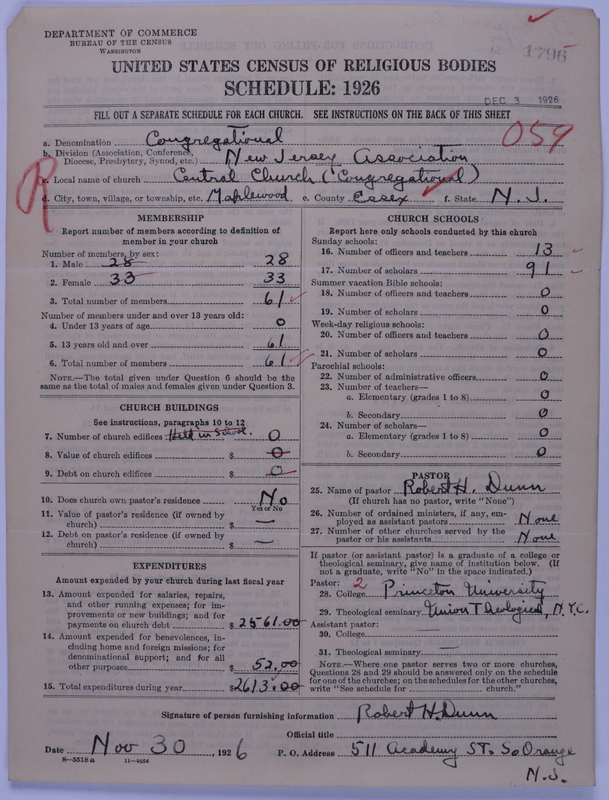 DEPARTMENT OF COMMERCE
BUREAU OF THE CENSUS
WASHINGTON
1796
UNITED STATES CENSUS OF RELIGIOUS BODIES
SCHEDULE: 1926
DEC 3 1926
FILL OUT A SEPARATE SCHEDULE FOR EACH CHURCH. SEE INSTRUCTIONS ON THE BACK OF THIS SHEET
059
a. Denomination Congregational
b. Division (Association, Conference, Diocese, Presbytery, Synod, etc.) New Jersey Association
c. Local name of church Central Church (Congregational)
R
d. City, town, village, or township, etc. Maplewood e. County Essex f. State N.J.
MEMBERSHIP
Report number of members according to definition of
member in your church
Number of members, by sex:
1. Male 28 28
2. Female 33 33
3. Total number of members 61
Number of members under and over 13 years old:
4. Under 13 years of age 0
5. 13 years old and over 61
6. Total number of members 61
NOTE.—The total given under Question 6 should be the
same as the total of males and females given under Question 3.
CHURCH BUILDINGS
See instructions, paragraphs 10 to 12
7. Number of church edifices Held in 0
8. Value of church edifices $ 0
9. Debt on church edifices $ 0
10. Does church own pastor's residence No
Yes or No
11. Value of pastor's residence (if owned by
church) $ —
12. Debt on pastor's residence (if owned by
church) $ —
EXPENDITURES
Amount expended by your church during last fiscal year
13. Amount expended for salaries, repairs,
and other running expenses; for im-
provements or new buildings; and for
payments on church debt $ 2561.00
14. Amount expended for benevolences, in-
cluding home and foreign missions; for
denominational support; and for all
other purposes $ 52.00
15. Total expenditures during year $ 2613.00
CHURCH SCHOOLS
Report here only schools conducted by this church
Sunday schools:
16. Number of officers and teachers 13
17. Number of scholars 91
Summer vacation Bible schools:
18. Number of officers and teachers 0
19. Number of scholars 0
Week-day religious schools:
20. Number of officers and teachers 0
21. Number of scholars 0
Parochial schools:
22. Number of administrative officers 0
23. Number of teachers—
a. Elementary (grades 1 to 8) 0
b. Secondary 0
24. Number of scholars—
a. Elementary (grades 1 to 8) 0
b. Secondary 0
PASTOR
25. Name of pastor Robert H. Dunn
(If church has no pastor, write "None")
26. Number of ordained ministers, if any, em-
ployed as assistant pastors None
27. Number of other churches served by the
pastor or his assistants None
If pastor (or assistant pastor) is a graduate of a college or
theological seminary, give name of institution below. (If
not a graduate, write "No" in the space indicated.)
Pastor: 2
28. College Princeton University
29. Theological seminary Union Theological, N.Y.C.
Assistant pastor:
30. College —
31. Theological seminary —
NOTE.—Where one pastor serves two or more churches,
Questions 28 and 29 should be answered only on the schedule
for one of the churches; on the schedules for the other churches,
write "See schedule for church."
Signature of person furnishing information Robert H. Dunn
Official title
Date Nov 30, 1926 P. O. Address 511 Academy ST. So Orange
N.J.
8—5518a 11—9564